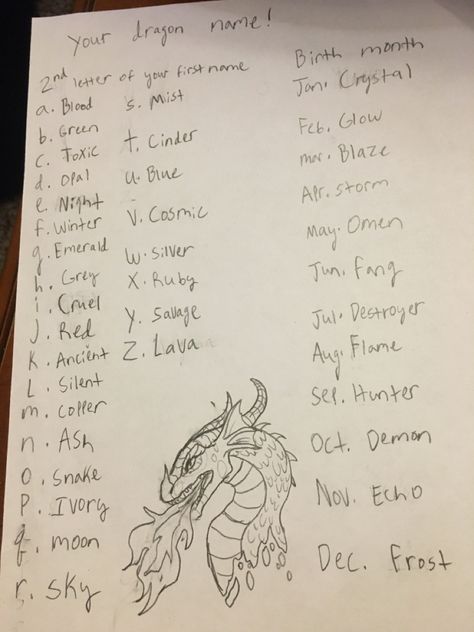 Your dragon name!
2nd letter of your first name
a. Blood
b. Green
c. Toxic
d. Opal
e. Night
f. Winter
g. Emerald
h. Grey
i. Cruel
J. Red
K. Ancient
L. Silent
m. Copper
n. Ash
o. Snake
P. Ivory
q. moon
r. Sky
s. Mist
t. Cinder
u. Blue
v. Cosmic
w. Silver
X. Ruby
y. Savage
Z. Lava
Birth month
Jan. Crystal
Feb. Glow
mar. Blaze
Apr. storm
May. Omen
Jun. Fang
Jul. Destroyer
Aug. Flame
Sep. Hunter
Oct. Demon
Nov. Echo
Dec. Frost